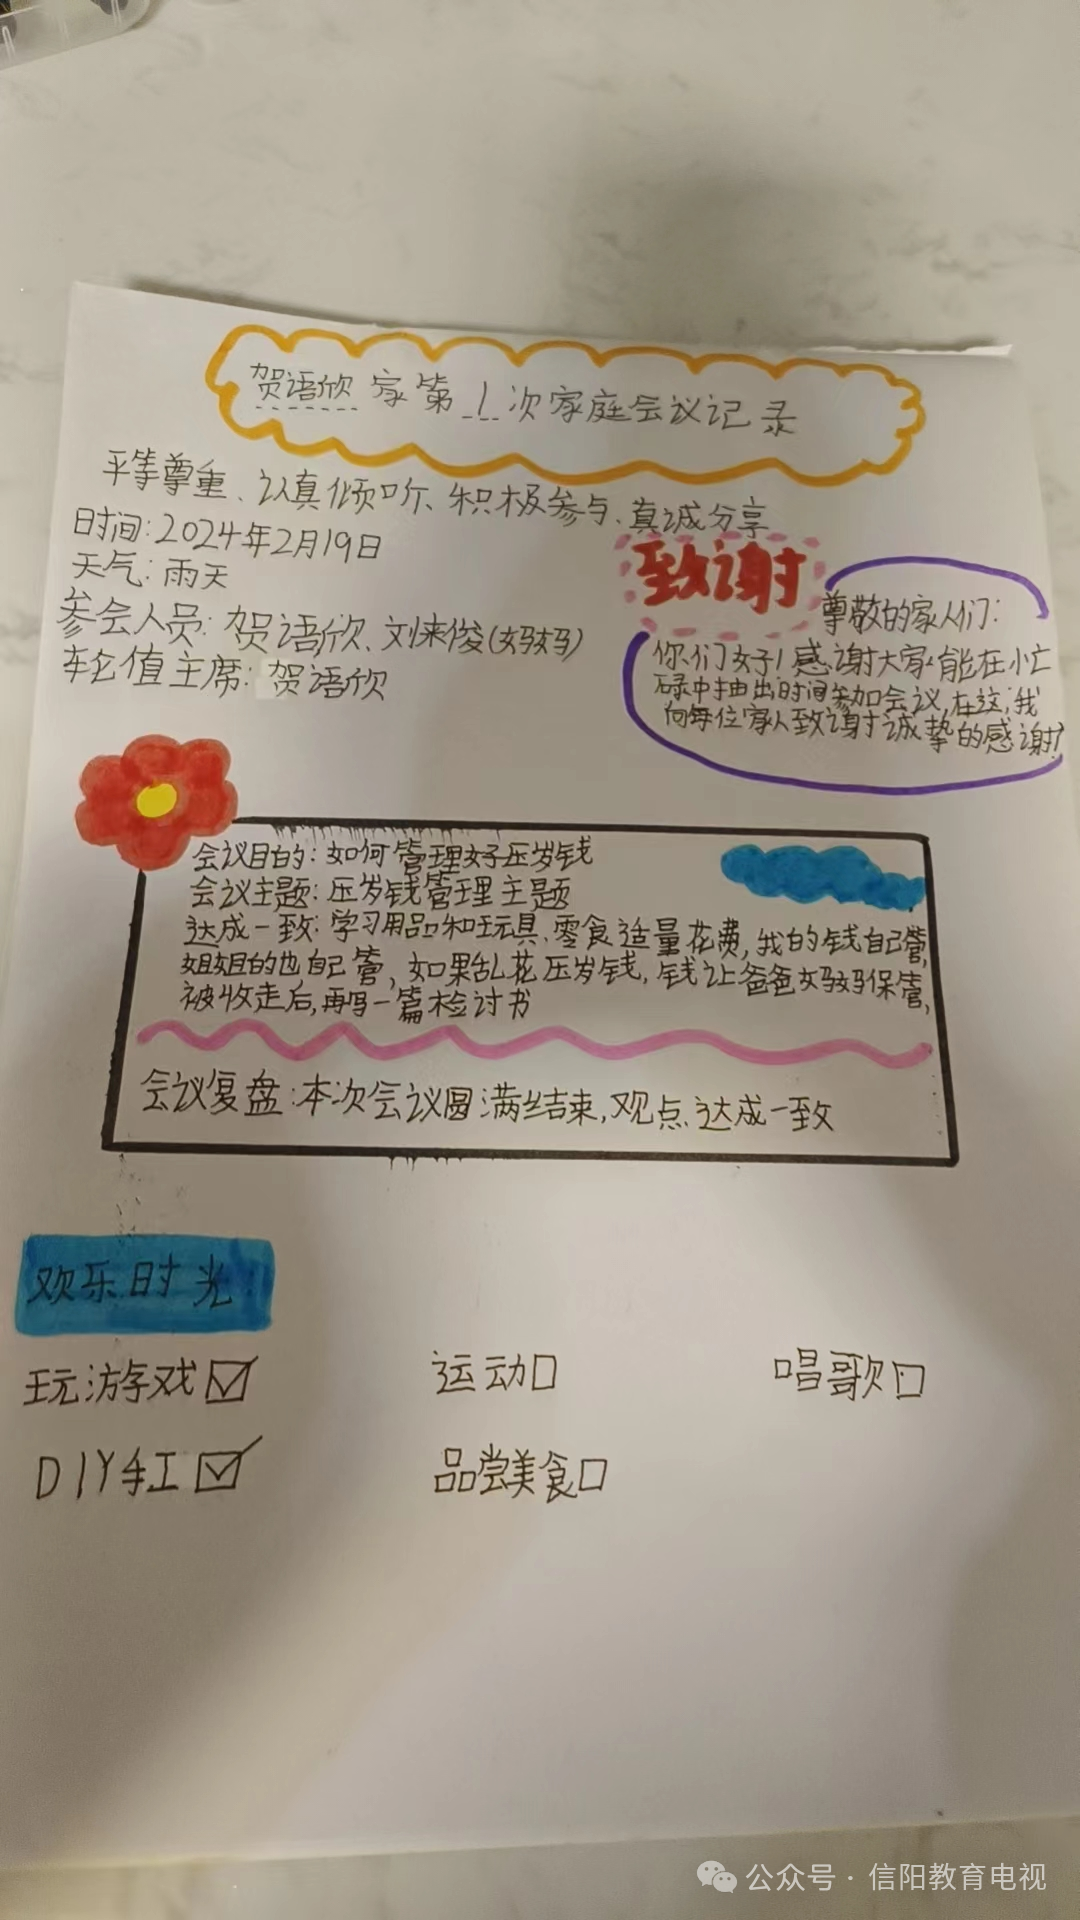 贺语欣家第1次家庭会议记录
平等尊重、认真倾听、积极参与、真诚分享
时间:2024年2月19日
天气:雨天
参会人员:贺语欣、刘来俊(妈妈)
轮值主席:贺语欣
致谢
尊敬的家人们:
你们好!感谢大家能在忙
碌中抽出时间参加会议,在这,我
向每位家人致谢寸诚挚的感谢!
会议目的:如何管理好压岁钱
会议主题:压岁钱管理主题
达成一致:学习用品和玩具、零食适量花费,我的钱自己管,
姐姐的也自己管,如果乱花压岁钱,钱让爸爸妈妈保管,
被收走后,再写一篇检讨书
会议复盘:本次会议圆满结束,观点达成一致
欢乐时光
玩游戏☑ 运动□ 唱歌□
DIY手工☑ 品尝美食□
公众号·信阳教育电视